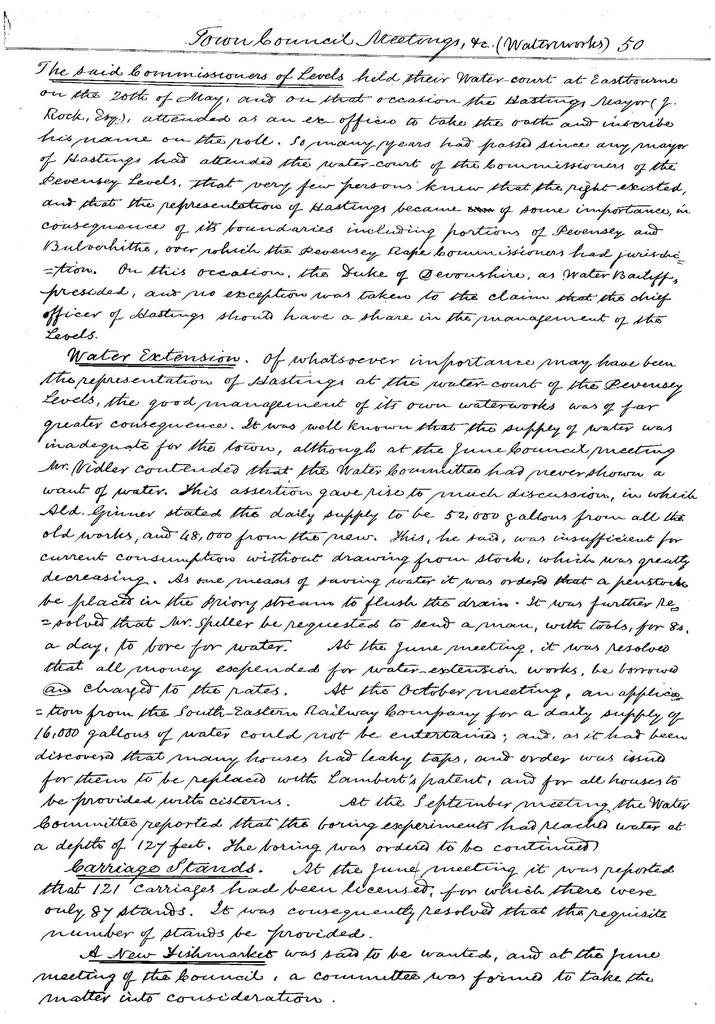 Town Council Meetings, &c. (Waterworks) 50
The said Commissioners of Levels held their Water-court at Eastbourne
on the 20th of May, and on that occasion the Hastings Mayor (J.
Rock, Esq), attended as an ex officio to take the oath and inscribe
his name on the roll. So many years had passed since any mayor
of Hastings had attended the water-court of the Commissioners of the
Pevensey Levels, that very few persons knew that the right existed,
and that the representation of Hastings became of some importance, in
consequence of its boundaries including portions of Pevensey and
Bulverhithe, over which the Pevensey Rape Commissioners had jurisdic=
=tion. On this occasion, the Duke of Devonshire, as Water Bailiff,
presided, and no exception was taken to the claim that the chief
officer of Hastings should have a share in the management of the
Levels.
Water Extension. Of whatsoever importance may have been
the representation of Hastings at the water-court of the Pevensey
Levels, the good management of its own waterworks was of far
greater consequence. It was well known that the supply of water was
inadequate for the town, although at the June Council meeting
Mr. Vidler contended that the Water Committee had never shown a
want of water. This assertion gave rise to much discussion, in which
Ald. Ginner stated the daily supply to be 52,000 gallons from all the
old works, and 48,000 from the new. This, he said, was insufficient for
current consumption without drawing from stock, which was greatly
decreasing. As one means of saving water it was ordered that a penstock
be placed in the Priory stream to flush the drain. It was further re=
=solved that Mr. Speller be requested to send a man, with tools, for 8s.
a day, to bore for water. At the June meeting, it was resolved
that all money expended for water-extension works, be borrowed
an charged to the rates. At the October meeting, an applica=
=tion from the South-Eastern Railway Company for a daily supply of
16,000 gallons of water could not be entertained; and, as it had been
discovered that many houses had leaky taps, and order was issued
for them to be replaced with Lambert's patent, and for all houses to
be provided with cisterns. At the September meeting the Water
Committee reported that the boring experiments had reached water at
a depth of 127 feet. The boring was ordered to be continued)
Carriage Stands. At the June meeting it was reported
that 121 carriages had been licensed, for which there were
only 87 stands. It was consequently resolved that the requisite
number of stands be provided.
A New Fishmarket was said to be wanted, and at the June
meeting of the Council, a committee was formed to take the
matter into consideration.